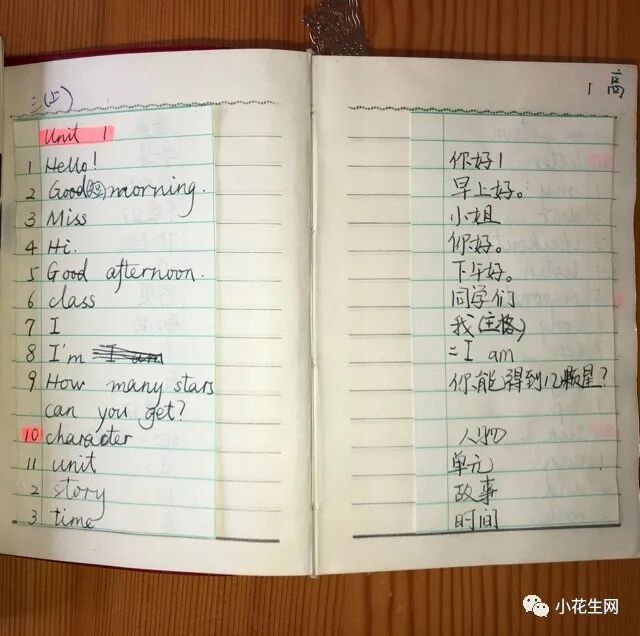 三(上)
Unit 1
1 Hello!
2 Good morning.
3 Miss
4 Hi.
5 Good afternoon.
6 class
7 I
8 I'm
9 How many stars
can you get?
10 character
11 unit
2 story
3 time
1 高
你好!
早上好。
小姐
你好。
下午好。
同学们
我(主格)
=I am
你能得到几颗星?
人物
单元
故事
时间
小花生网